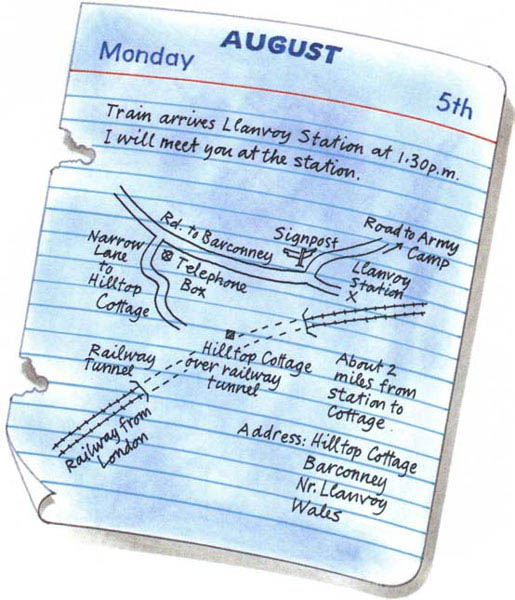 AUGUST
Monday
5th
Train arrives Llanvoy Station at 1.30p.m.
I will meet you at the station.
Rd. to Barconney
Signpost
Road to Army
Camp
Narrow
Lane
to
Hilltop
Cottage
Telephone
Box
Llanvoy
Station
X
Railway
Tunnel
Hilltop Cottage
over railway
tunnel
About 2
miles from
station to
Cottage.
Railway from
London
Address: Hilltop Cottage
Barconney
Nr. Llanvoy
Wales